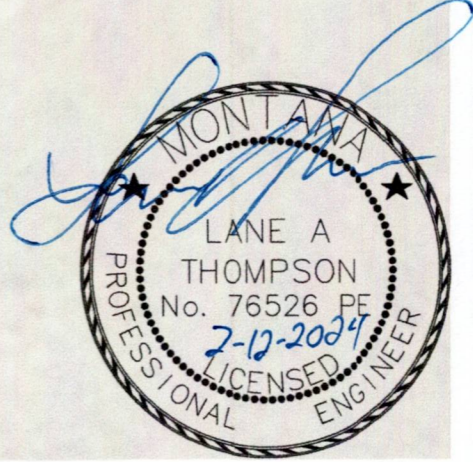 MONTANA
LANE A
THOMPSON
No. 76526 PE
2-12-2024
LICENSED
PROFESSIONAL ENGINEER